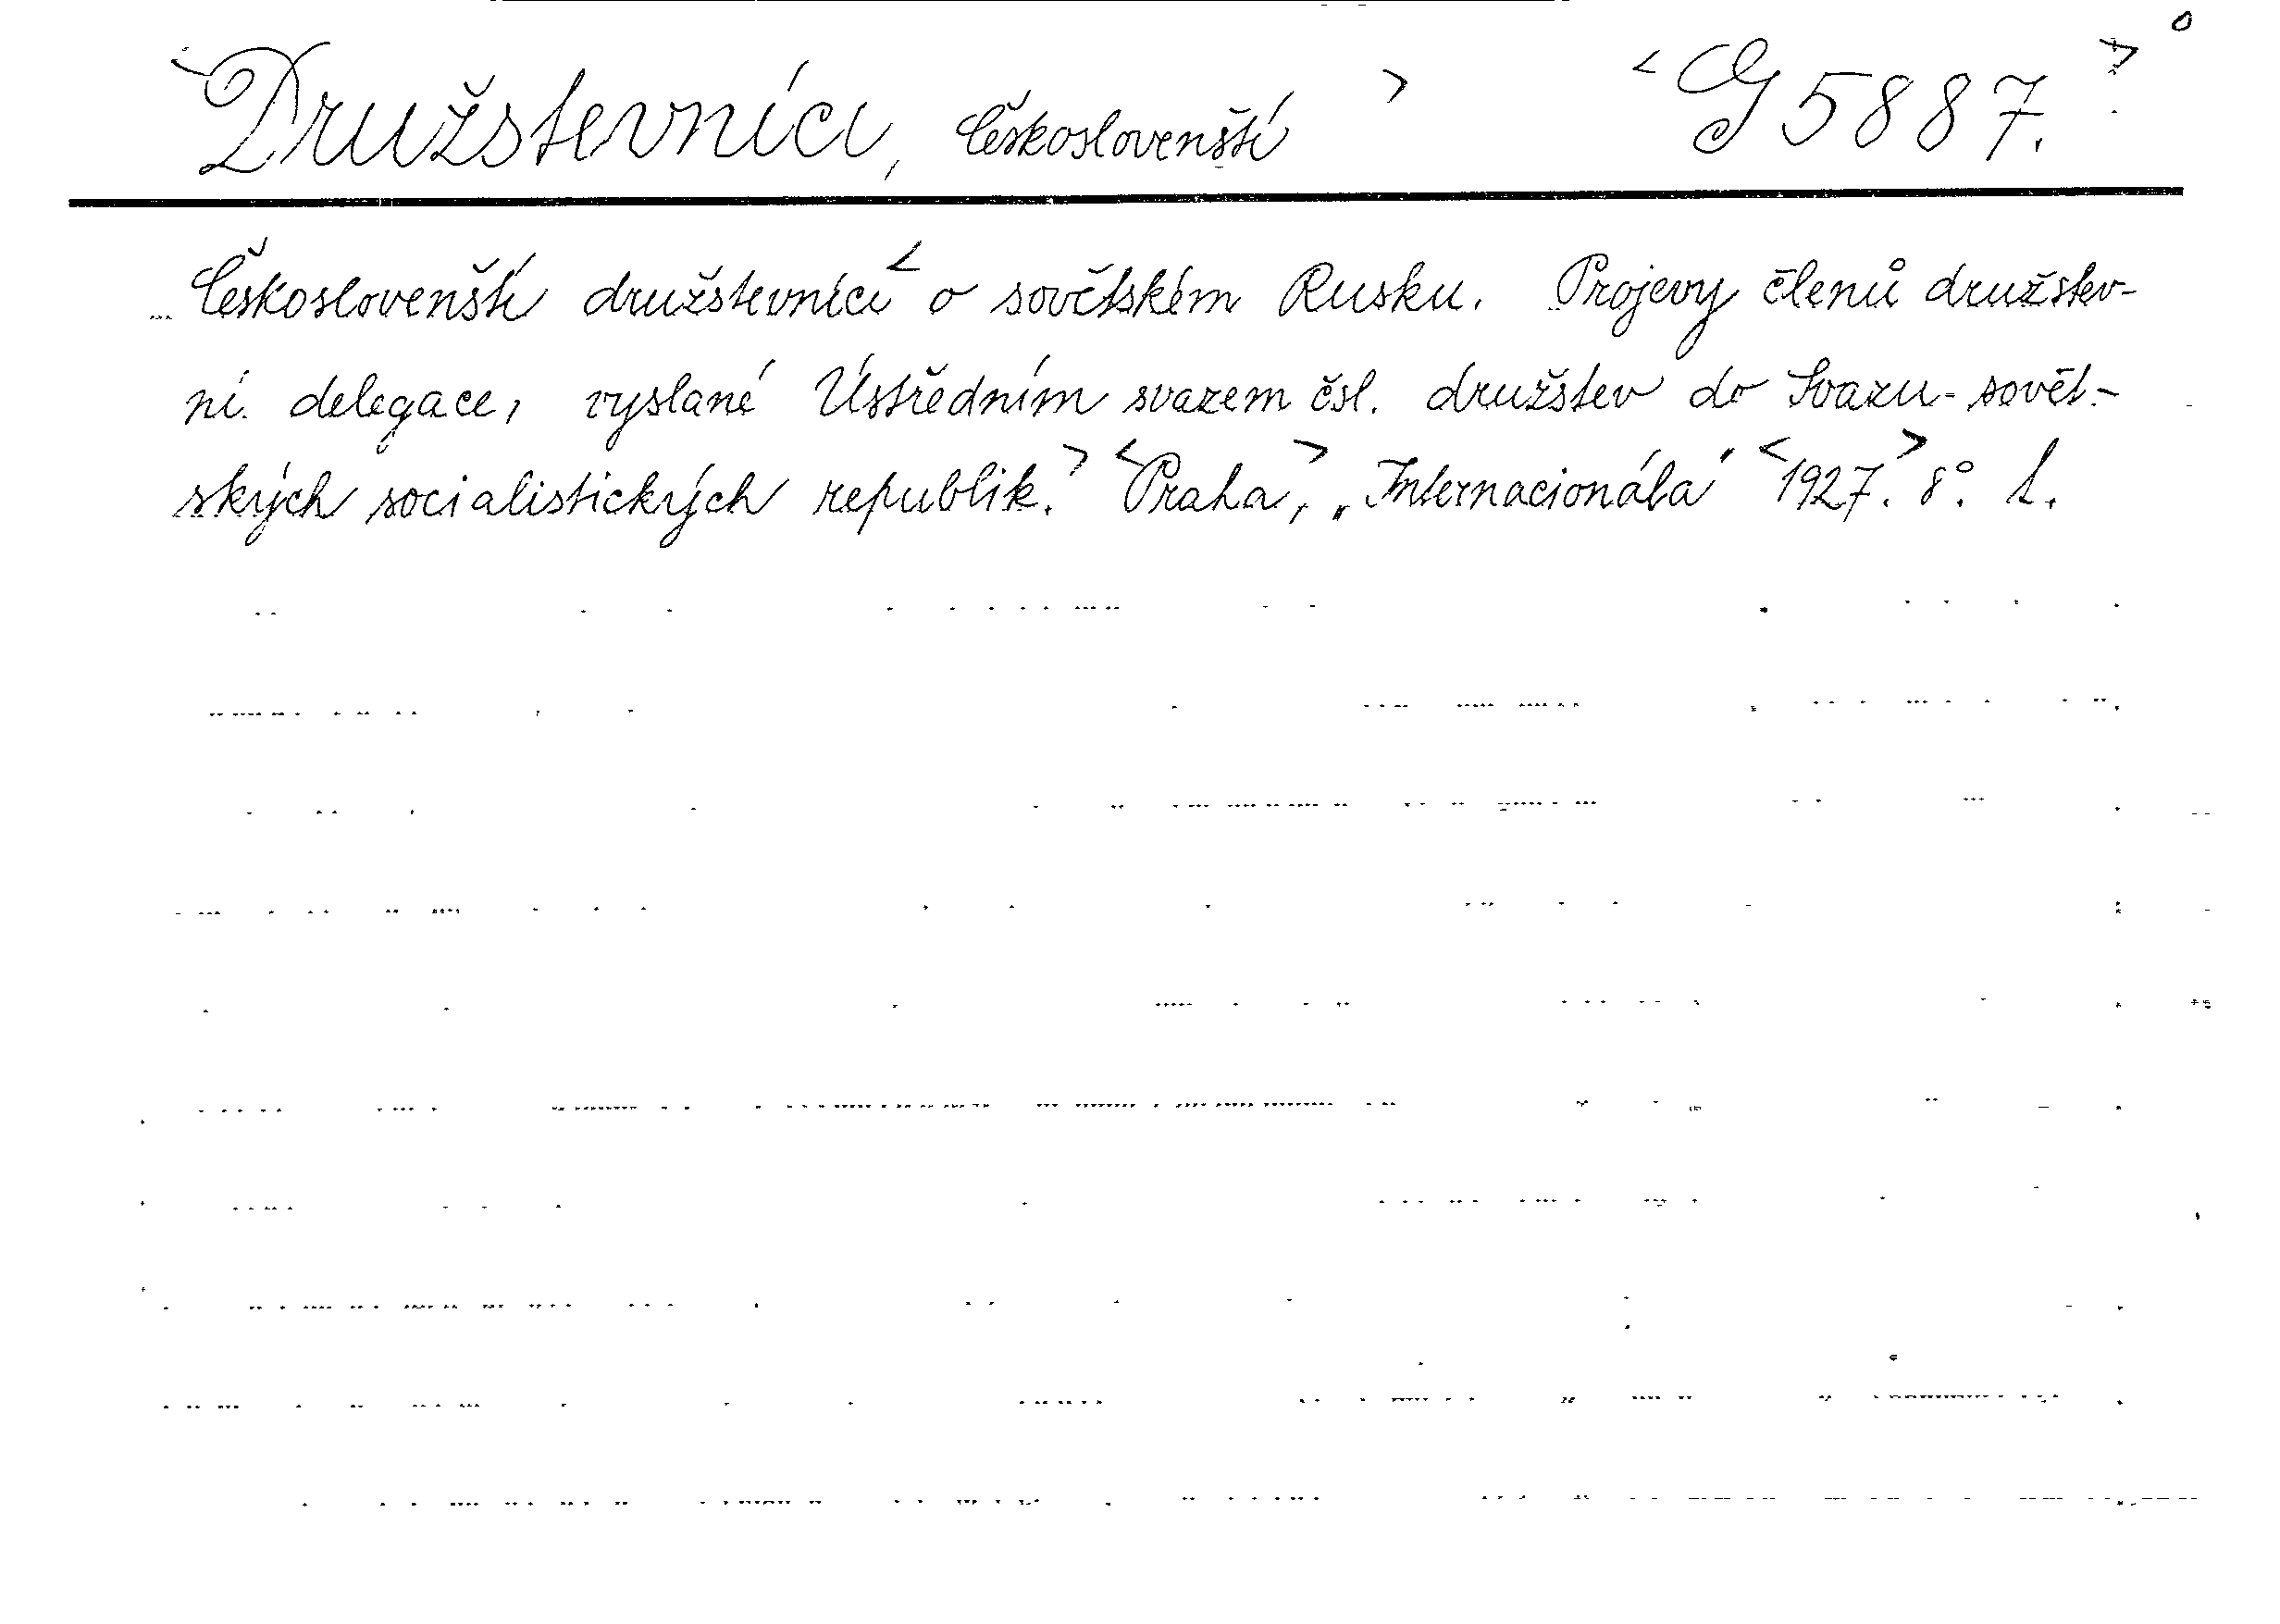 Družstevníci, Českoslovenští > < G 5887. >
Českoslovenští družstevníci < o sovětském Rusku. Projevy členů družstev-
ní delegace, vyslané Ústředním svazem čsl. družstev do Svazu sovět-
ských socialistických republik. > < Praha, > „Internacionála" < 1927. > 8°. 1.